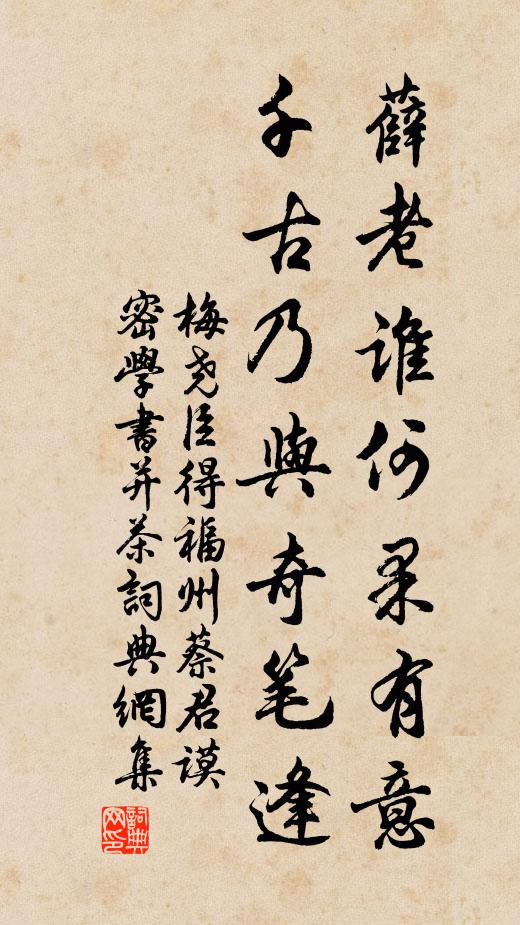 薛老谁何果有意
千古乃與奇笔逢
梅尧臣得福州蔡君谟
密學書并茶詞典網集
詞典网印